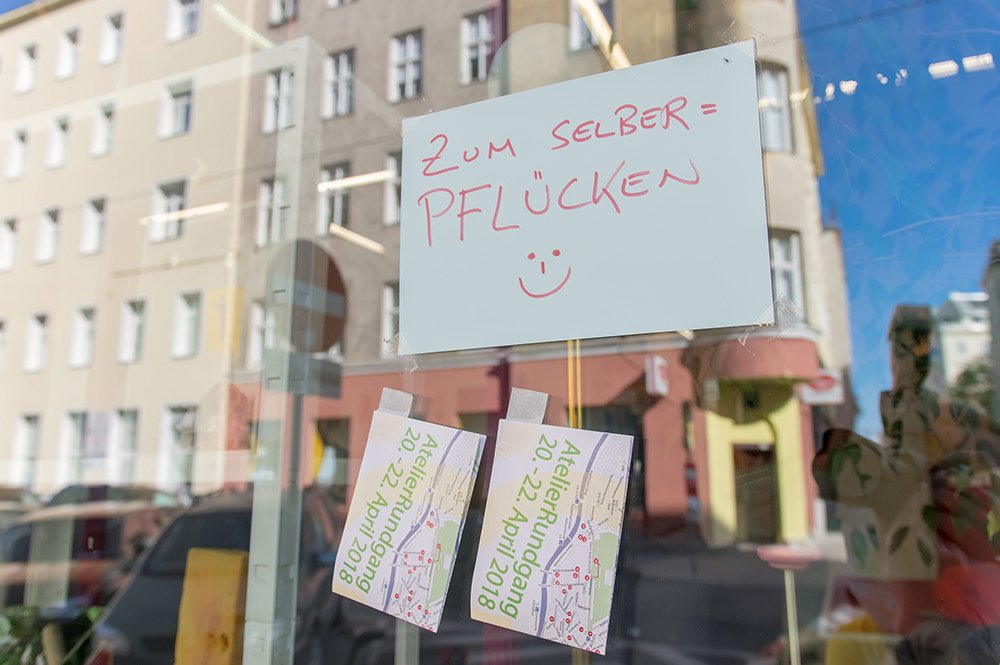 ZUM SELBER=
PFLÜCKEN
AtelierRundgang
20. - 22. April 2018
AtelierRundgang
20 - 22. April 2018